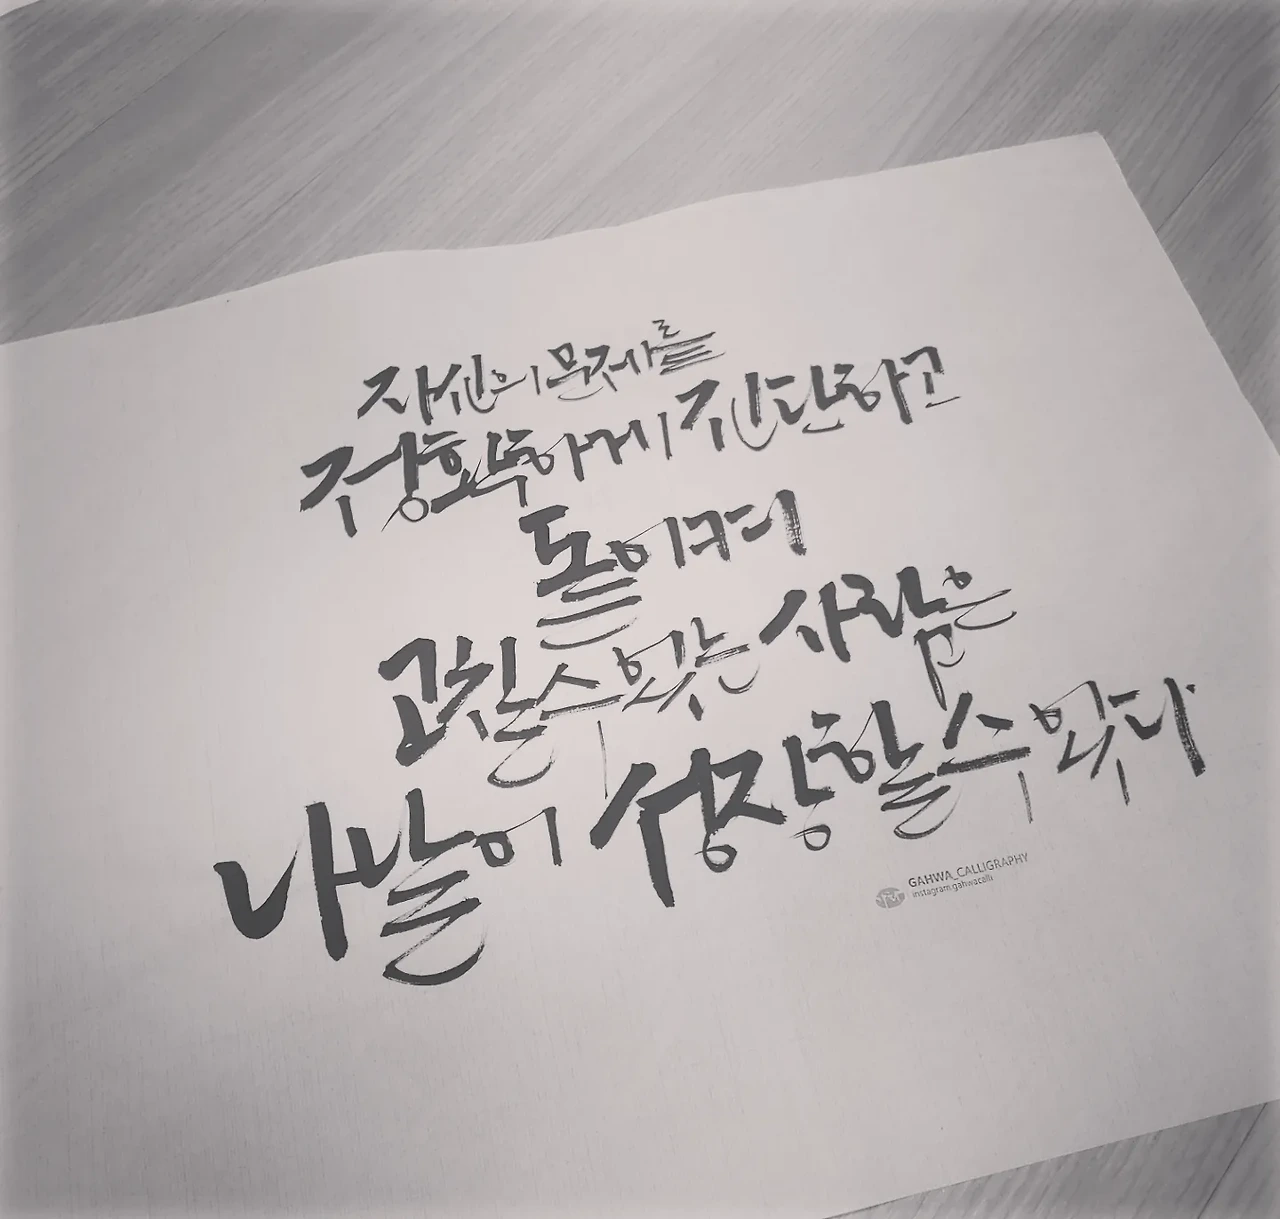 자신의 문제를
정확하게 진단하고
돌이켜
고칠 수 있는 사람은
나날이 성장할 수 있다
GAHWA_CALLIGRAPHY
instagram.gahwacalli